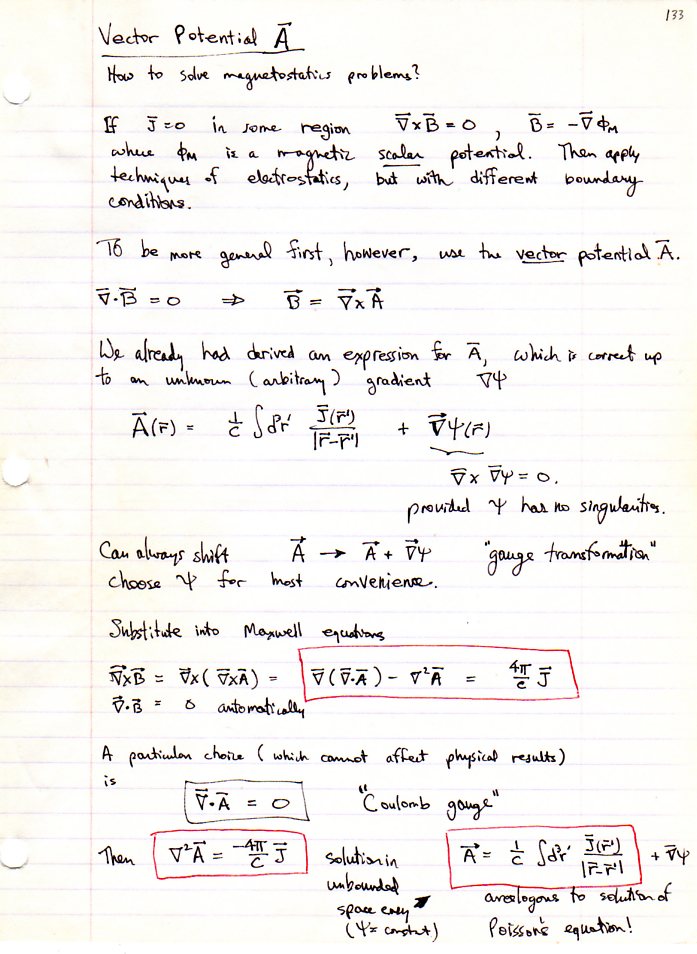 133
Vector Potential A⃗
How to solve magnetostatics problems?
If J⃗=0 in some region ∇⃗×B⃗=0, B⃗=-∇⃗ϕ_M
where ϕ_M is a magnetic scalar potential. Then apply
techniques of electrostatics, but with different boundary
conditions.
To be more general first, however, use the vector potential A⃗.
∇⃗·B⃗ = 0 ⇒ B⃗ = ∇⃗×A⃗
We already had derived an expression for A⃗, which is correct up
to an unknown (arbitrary) gradient ∇ψ
A⃗(r⃗) = 1/c ∫d³r' J⃗(r⃗')/|r⃗-r⃗'| + ∇⃗ψ(r⃗)
∇⃗×∇⃗ψ = 0.
provided ψ has no singularities.
Can always shift A⃗ → A⃗ + ∇⃗ψ "gauge transformation"
choose ψ for most convenience.
Substitute into Maxwell equations
∇⃗×B⃗ = ∇⃗×(∇⃗×A⃗) = ∇⃗(∇⃗·A⃗) - ∇²A⃗ = 4π/c J⃗
∇⃗·B⃗ = 0 automatically
A particular choice (which cannot affect physical results)
is
∇⃗·A⃗ = 0 "Coulomb gauge"
Then ∇²A⃗ = -4π/c J⃗ solution in A⃗ = 1/c ∫d³r' J⃗(r⃗')/|r⃗-r⃗'| + ∇⃗ψ
unbounded
space analogous to solution of
(ψ = constant) Poisson's equation!